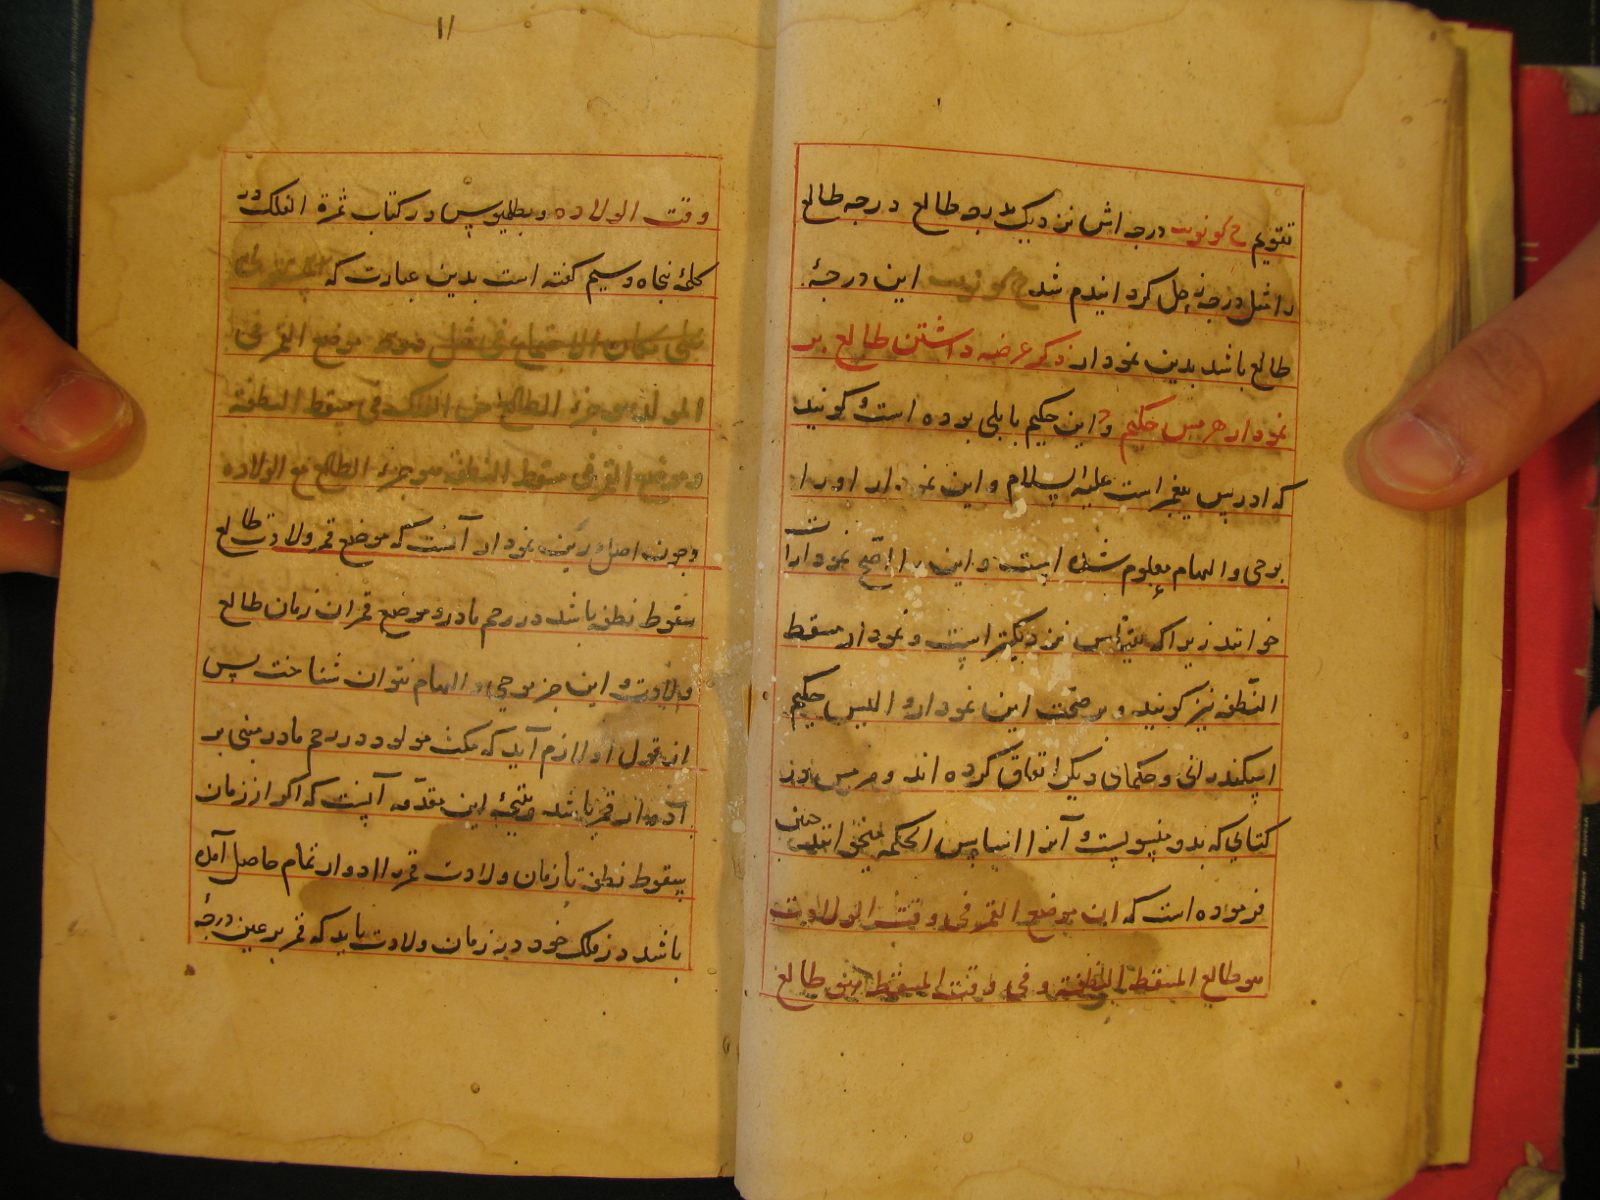 تقویم ح کو نوبت درجه اش نزدیک بدرجه طالع درجه طالع
را مثل درجه نه چل کردانیدم شد این درجهٔ
طالع باشد بدین نمودار ذکر عرضه داشتن طالع بر
نمودار هرمس حکیم و این حکیم بابلی بوده است و کویند
که ادریس پیغمبر است علیه السلام و این نمودار او را
بوحی و الهام معلوم شده است و این را اصح نمودارات
خوانند زیرا که بقیاس نزدیکتر است و نمودار مسقط
النطفه نیز کویند و بر صحت این نمودار والیس حکیم
اسکندرانی و حکمای دیکر اتفاق کرده اند و هرمس در
کتابی که بدو منسوبست و آنرا اساس الحکمه چنین
فرموده است که ان موضع القمر فی وقت الولادت
هو طالع المسقط النطفة و فی وقت المسقط هو طالع
۱۱
وقت الولاده و بطلمیوس در کتاب ثمرة الفلک در
کلمهٔ پنجاه و سیم کفته است بدین عبارت که
موضع القمر فی
المولد هو جزء الطالع من الفلک فی مسقط النطفة
و موضع القمر فی مسقط النطفه هو جزء الطالع مع الولاده
و چون اصل درین نمودار آنست که موضع قمر ولادت طالع
سقوط نطفه باشد در رحم مادر و موضع قمر ان زمان طالع
ولادت و این جز بوحی و الهام نتوان شناخت پس
از قول او لازم آید که مکث مولود در رحم مادر مبنی بر
ادوار قمر باشد و نتیجهٔ این مقدمه آنست که اکر از زمان
سقوط نطفه تا زمان ولادت قمر را ادوار تمام حاصل آمده
باشد در فلک خود در زمان ولادت باید که قمر بر عین درجهٔ